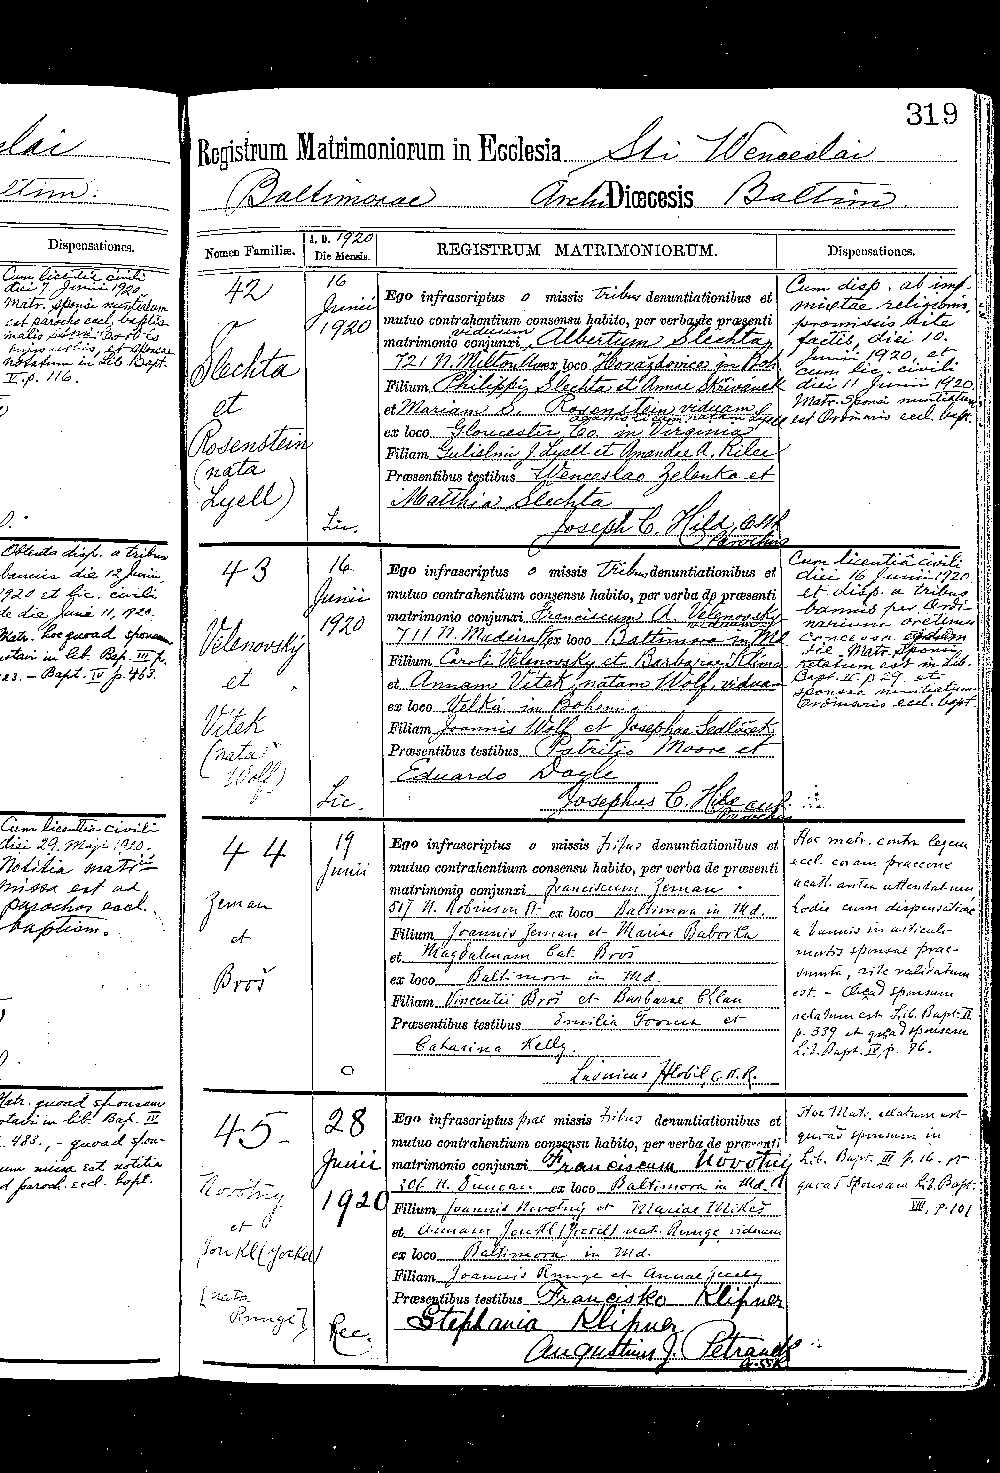 319
Registrum Matrimoniorum in Ecclesia Sti Wenceslai
Baltimorae Archi Diœcesis Baltim.
slai
ltim.
Dispensationes.
Cum licentia civili
diei 7 Junii 1920
Matr. sponsi nuntiatum
est parocho eccl. baptis
notatum in Lib. Bapt.
V. p. 116.
Obtenta disp. a tribus
bannis die 12 Junii
1920 et lic. civili
de die June 11, 1920.
Matr. hoc quoad sponsam
notatum in lib. Bap. III p.
23. - Bapt. IV p. 463.
Cum licentia civili
diei 29. Maji 1920.
Notitia matri-
missa est ad
parochos eccl.
baptism.
Matr. quoad sponsam
notatum in lib. Bap. IV
483., - quoad spon-
sum missa est notitia
ad paroch. eccl. bapt.
Nomen Familiæ.
A. D. 1920
Die Mensis.
REGISTRUM MATRIMONIORUM.
Dispensationes.
42
Slechta
et
Rosenstein
(nata
Lyell)
16
Junii
1920
Lic.
Ego infrascriptus o missis tribus denuntiationibus et
mutuo contrahentium consensu habito, per verba de præsenti
viduum
matrimonio conjunxi Albertum Slechta,
721 N. Milton Ave ex loco Horažďovice in Boh
Filium Philippi Slechta et Annae Skřivanek
et Mariam S. Rosenstein viduam
natam Lyell
ex loco Gloucester Co. in Virginia
Filiam Gulielmi J Lyell et Amandae A. Riley
Præsentibus testibus Wenceslao Zelenka et
Matthia Slechta
Joseph C. Hild, C.SS.R.
Parochus
Cum disp. ab imp.
mixtae religionis,
promissis rite
factis, diei 10.
Junii 1920, et
cum lic. civili
diei 11 Junii 1920.
Matr. sponsi nuntiatum
est Ordinariis eccl. bapt.
43
Velenovský
et
Vitek
(nata
Wolf)
16
Junii
1920
Lic.
Ego infrascriptus o missis tribus denuntiationibus et
mutuo contrahentium consensu habito, per verba de præsenti
matrimonio conjunxi Franciscum A. Velenovsky
711 N. Madeira ex loco Baltimora in Md
Filium Caroli Velenovsky et Barbarae Klima
et Annam Vitek, natam Wolf, viduam
ex loco Velká in Bohemia
Filiam Joannis Wolf et Josephae Sedlaček
Præsentibus testibus Patritio Moore et
Eduardo Doyle
Josephus C. Hild
Parochus
Cum licentiâ civili
diei 16 Junii 1920
et disp. a tribus
bannis per Ordi-
narium oretenus
concessa eodem
die. Matr. Sponsi
notatum est in Lib.
Bapt. II p 29. et
sponsae nuntiatum
Ordinariis eccl. bapt
44
Zeman
et
Brož
19
Junii
o
Ego infrascriptus o missis tribus denuntiationibus et
mutuo contrahentium consensu habito, per verba de præsenti
matrimonio conjunxi Franciscum Zeman
517 N. Robinson St. ex loco Baltimora in Md.
Filium Joannis Zeman et Mariae Baborka
et Magdalenam Cat. Brož
ex loco Baltimora in Md
Filiam Vincentii Brož et Barbarae
Præsentibus testibus Emilia et
Catarina Kelly.
Ludvicus Hlobil, C.SS.R.
Hoc matr. contra legem
eccl. coram praecone
acath. antea attendatum
hodie cum dispensatione
a bannis in articulo
mortis sponsae prae-
sumta, rite validatum
est. - Quoad sponsum
relatum est Lib. Bapt. II
p. 339 et quoad sponsam
Lib. Bapt. IV, p. 86.
45
Novotny
et
Jonkl (Yockel)
[nata
Runge]
28
Junii
1920
Rec.
Ego infrascriptus prae missis tribus denuntiationibus et
mutuo contrahentium consensu habito, per verba de præsenti
matrimonio conjunxi Franciscum Novotny
306 N. Duncan ex loco Baltimora in Md.
Filium Joannis Novotny et Mariae Mikeš
et Annam Jonkl (Yockel) nat. Runge viduam
ex loco Baltimora in Md.
Filiam Joannis Runge et Annae
Præsentibus testibus Francisko Klipner
Stephania Klipner
Augustinus J. Petrasek
C.SS.R.
Hoc Matr. relatum est
quoad sponsum in
Lib. Bapt. III p. 16. et
quoad sponsam Lib. Bapt.
VII, p. 101